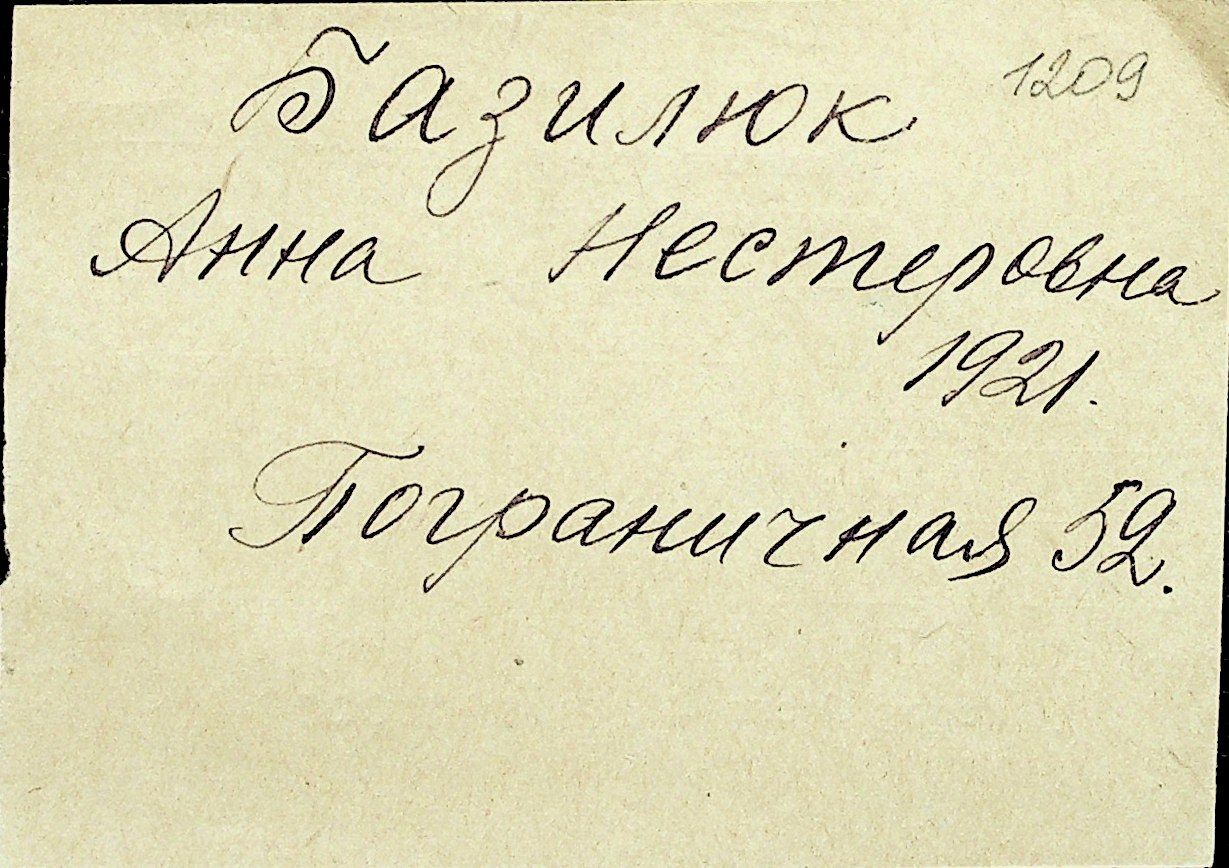 Базилюк 1209
Анна Нестеровна
1921.
Пограничная 52.